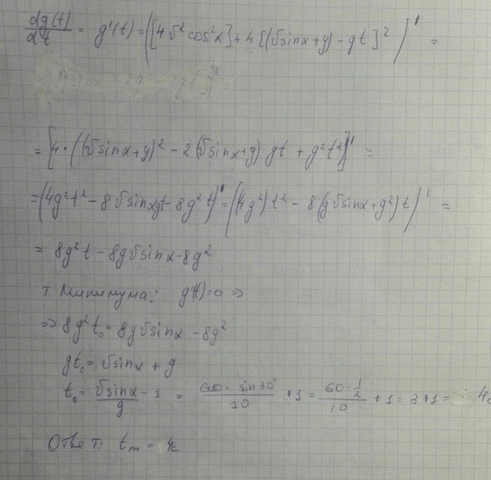 dg(t)/dt = g'(t) = ([4υ²cos²α] + 4[(υsinα+g) - gt]²)' =
= [4·((υsinα+g)² - 2(υsinα+g)·gt + g²t²)]' =
= (4g²t² - 8υsinαgt - 8g²t)' = ((4g²)t² - 8(gυsinα+g²)t)' =
= 8g²t - 8gυsinα - 8g²
т. минимума: g'(t)=0 ⇒
⇒ 8g²t₀ = 8gυsinα - 8g²
gt₀ = υsinα + g
t₀ = υsinα/g - 1 = 60·sin30°/10 + 1 = 60·½/10 + 1 = 3+1 = 4c
Ответ: tₘ = 4c